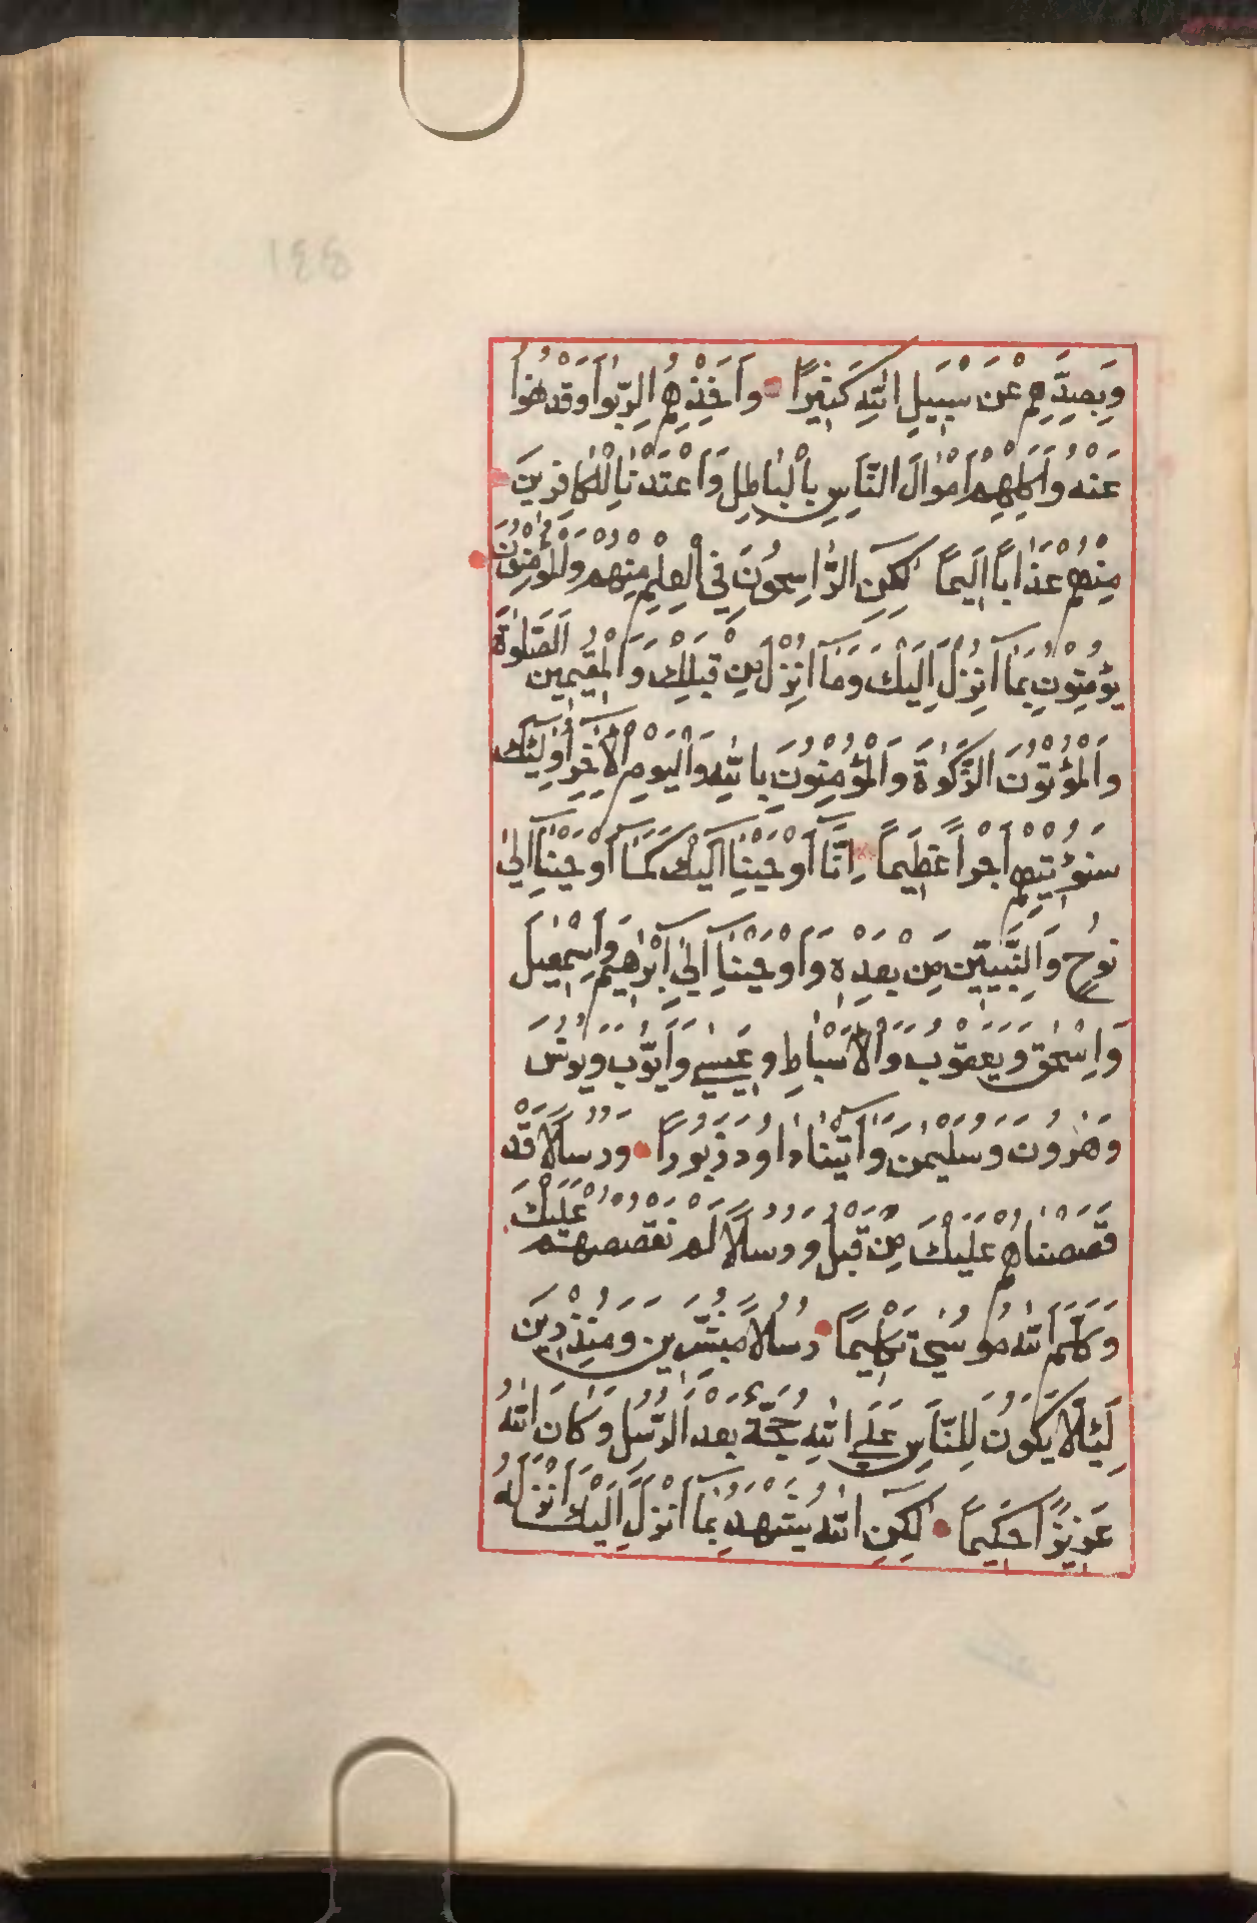 وَبِصَدِّهِمْ عَنْ سَبِيلِ اللّٰهِ كَثِيرًا وَاَخْذِهِمُ الرِّبٰوا وَقَدْ نُهُوا
عَنْهُ وَاَكْلِهِمْ اَمْوَالَ النَّاسِ بِالْبَاطِلِ وَاَعْتَدْنَا لِلْكَافِرِينَ
مِنْهُمْ عَذَابًا اَلِيمًا لٰكِنِ الرَّاسِخُونَ فِي الْعِلْمِ مِنْهُمْ وَالْمُؤْمِنُونَ
يُؤْمِنُونَ بِمَآ اُنْزِلَ اِلَيْكَ وَمَآ اُنْزِلَ مِنْ قَبْلِكَ وَالْمُقِيمِينَ الصَّلٰوةَ
وَالْمُؤْتُونَ الزَّكٰوةَ وَالْمُؤْمِنُونَ بِاللّٰهِ وَالْيَوْمِ الْاٰخِرِ اُولٰٓئِكَ
سَنُؤْتِيهِمْ اَجْرًا عَظِيمًا اِنَّآ اَوْحَيْنَآ اِلَيْكَ كَمَآ اَوْحَيْنَآ اِلٰى
نُوحٍ وَالنَّبِيِّينَ مِنْ بَعْدِهٖ وَاَوْحَيْنَآ اِلٰٓى اِبْرٰهِيمَ وَاِسْمٰعِيلَ
وَاِسْحٰقَ وَيَعْقُوبَ وَالْاَسْبَاطِ وَعِيسٰى وَاَيُّوبَ وَيُونُسَ
وَهٰرُونَ وَسُلَيْمٰنَ وَاٰتَيْنَا دَاوُدَ زَبُورًا وَرُسُلًا قَدْ
قَصَصْنَاهُمْ عَلَيْكَ مِنْ قَبْلُ وَرُسُلًا لَمْ نَقْصُصْهُمْ عَلَيْكَ
وَكَلَّمَ اللّٰهُ مُوسٰى تَكْلِيمًا رُسُلًا مُبَشِّرِينَ وَمُنْذِرِينَ
لِئَلَّا يَكُونَ لِلنَّاسِ عَلَى اللّٰهِ حُجَّةٌ بَعْدَ الرُّسُلِ وَكَانَ اللّٰهُ
عَزِيزًا حَكِيمًا لٰكِنِ اللّٰهُ يَشْهَدُ بِمَآ اَنْزَلَ اِلَيْكَ اَنْزَلَهُ